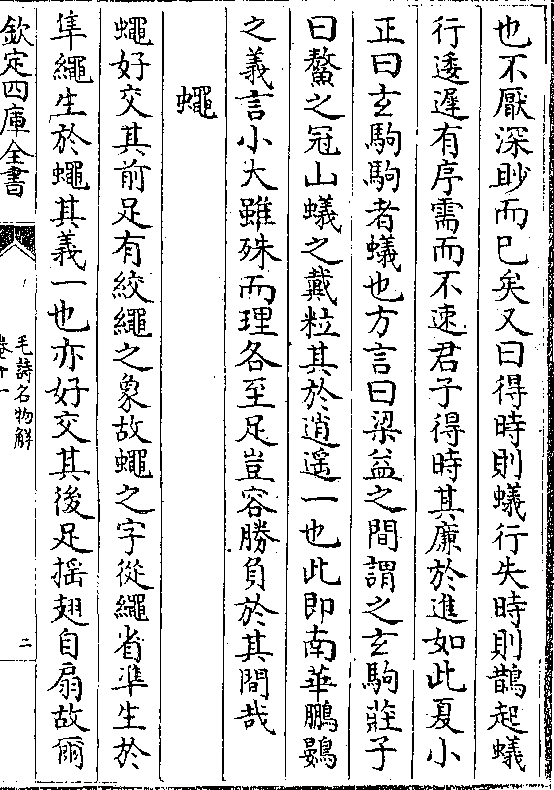 也不厭深眇而已矣又曰得時則蟻行失時則鵲起蟻
行逶遲有序需而不速君子得時其廉於進如此夏小
正曰玄駒駒者蟻也方言曰梁益之間謂之玄駒莊子
曰鰲之冠山蟻之戴粒其於逍遙一也此即南華鵬鷃
之義言小大雖殊而理各至足豈容勝負於其間哉
蠅
蠅好交其前足有絞繩之象故蠅之字從繩省準生於
隼繩生於蠅其義一也亦好交其後足揺翅自扇故爾
欽定四庫全書
毛詩名物解
卷十一
二